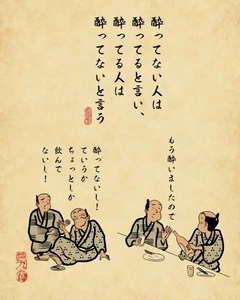 酔ってない人は
酔ってると言い、
酔ってる人は
酔ってないと言う
もう酔いましたので
酔ってないし!
ていうか
ちょっとしか
飲んで
ないし!